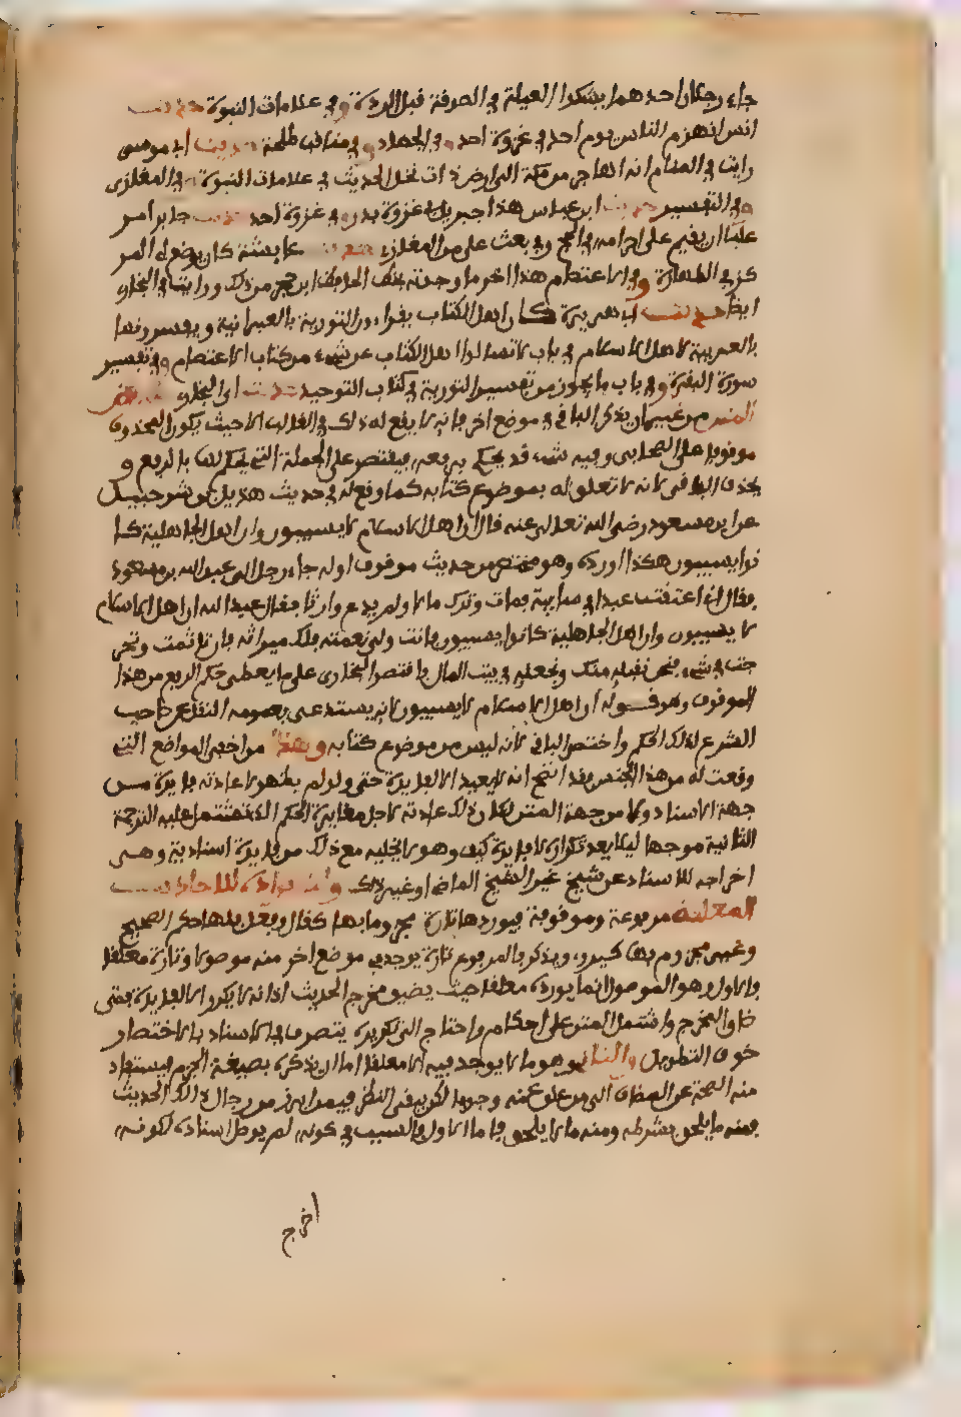 جاء رجلان احدهما يشكوا العيلة في الصرفة قبل الردة وفي علامات النبوة حديث
انس انهزم الناس يوم احد في غزوة احد وفي الجهاد وفي مناقب طلحة حديث ابي موسى
رايت في المنام انه اهاجر من مكة الى ارض ذات نخل الحديث في علامات النبوة وفي المغازى
وفي التفسير حديث ابن عباس هذا جبريل في غزوة بدر وفي غزوة احد حديث جابر امر
عليّا ان يقيم على احرامه في الحج وفي بعث علي من المغازي حديث عايشة كان يوضع له المر
كز في الطهارة وفي الاعتصام هذا اخر ما وجدته بخط الحافظ ابن حجر من ذلك ورايت في البخاري
ايضا حديث ابي هريرة كان اهل الكتاب يقراون التورية بالعبرانية ويفسرونها
بالعربية لاهل الاسلام في باب لا تسالوا اهل الكتاب عن شيء من كتاب الاعتصام وفي تفسير
سورة البقرة وفي باب ما يجوز من تفسير التورية في كتاب التوحيد
المتن من غير ان يذكر الباقي في موضع اخر فانه لا يقع له ذلك في الغالب الا حيث يكون المحذوف
موقوفا على الصحابي وفيه شيء قد يحكم برفعه فيقتصر على الجملة التي يحكم لها بالرفع و
يحذف الباقي لانه لا تعلق له بموضوع كتابه كما وقع له في حديث هذيل بن شرحبيل
عن ابن مسعود رضي الله تعالى عنه قال ان اهل الاسلام لا يسيبون وان اهل الجاهلية كا
نوا يسيبون هكذا اورده وهو مختصر من حديث موقوف اوله جاء رجل الى عبد الله بن مسعود
فقال اني اعتقت عبدا لي سايبة فمات وترك مالا ولم يدع وارثا فقال عبد الله ان اهل الاسلام
لا يسيبون وان اهل الجاهلية كانوا يسيبون فانت ولي نعمته فلك ميراثه فان تاثمت وتحر
جت في شيء فنحن نقبله منك ونجعله في بيت المال فاقتصر البخاري على ما يعطى حكم الرفع من هذا
الموقوف وهو قوله ان اهل الاسلام لا يسيبون لانه يستدعي بعمومه النقل عن صاحب
الشرع لذلك الحكم واختصر الباقي لانه ليس من موضوع كتابه وهذا من اخفى المواضع التي
وقعت له من هذا الجنس فقد اتضح انه لا يعيد الا لفايدة حتى ولو لم يظهر لاعادته فايدة من
جهة الاسناد ولا من جهة المتن لكان ذلك لاعادته لاجل مغايرة الحكم الذي تشتمل عليه الترجمة
الثانية موجبا ليلا يعد تكرارا لا فايدة كيف وهو لا يخليه مع ذلك من فايدة اسنادية وهي
اخراجه للاسناد عن شيخ غير الشيخ الماضي او غير ذلك واما ايراده للاحاديث
المعلقة مرفوعة وموقوفة فيوردها تارة مجزوما بها كقال وفعل فلها حكم الصحيح
وغير مجزوم بها كيروى ويذكر فالمرفوع تارة يوجد في موضع اخر منه موصولا وتارة معلقا
فالاول وهو الموصول انما يورده معلقا حيث يضيق مخرج الحديث اذ انه لا يكرر الا لفايدة فمتى
ضاق المخرج واشتمل المتن على احكام واحتاج الى تكريره يتصرف في الاسناد بالاختصار
خوف التطويل والثاني وهو ما لا يوجد فيه الا معلقا اما ان يذكره بصيغة الجزم فيستفاد
منه الصحة عن المضاف الى من علق عنه وجوبا لكن يبقى النظر فيمن ابرز من رجال ذلك الحديث
فمنه ما يلحق بشرطه ومنه ما لا يلحق فاما الاول فالسبب في كونه لم يوصل اسناده لكونه
اخرج